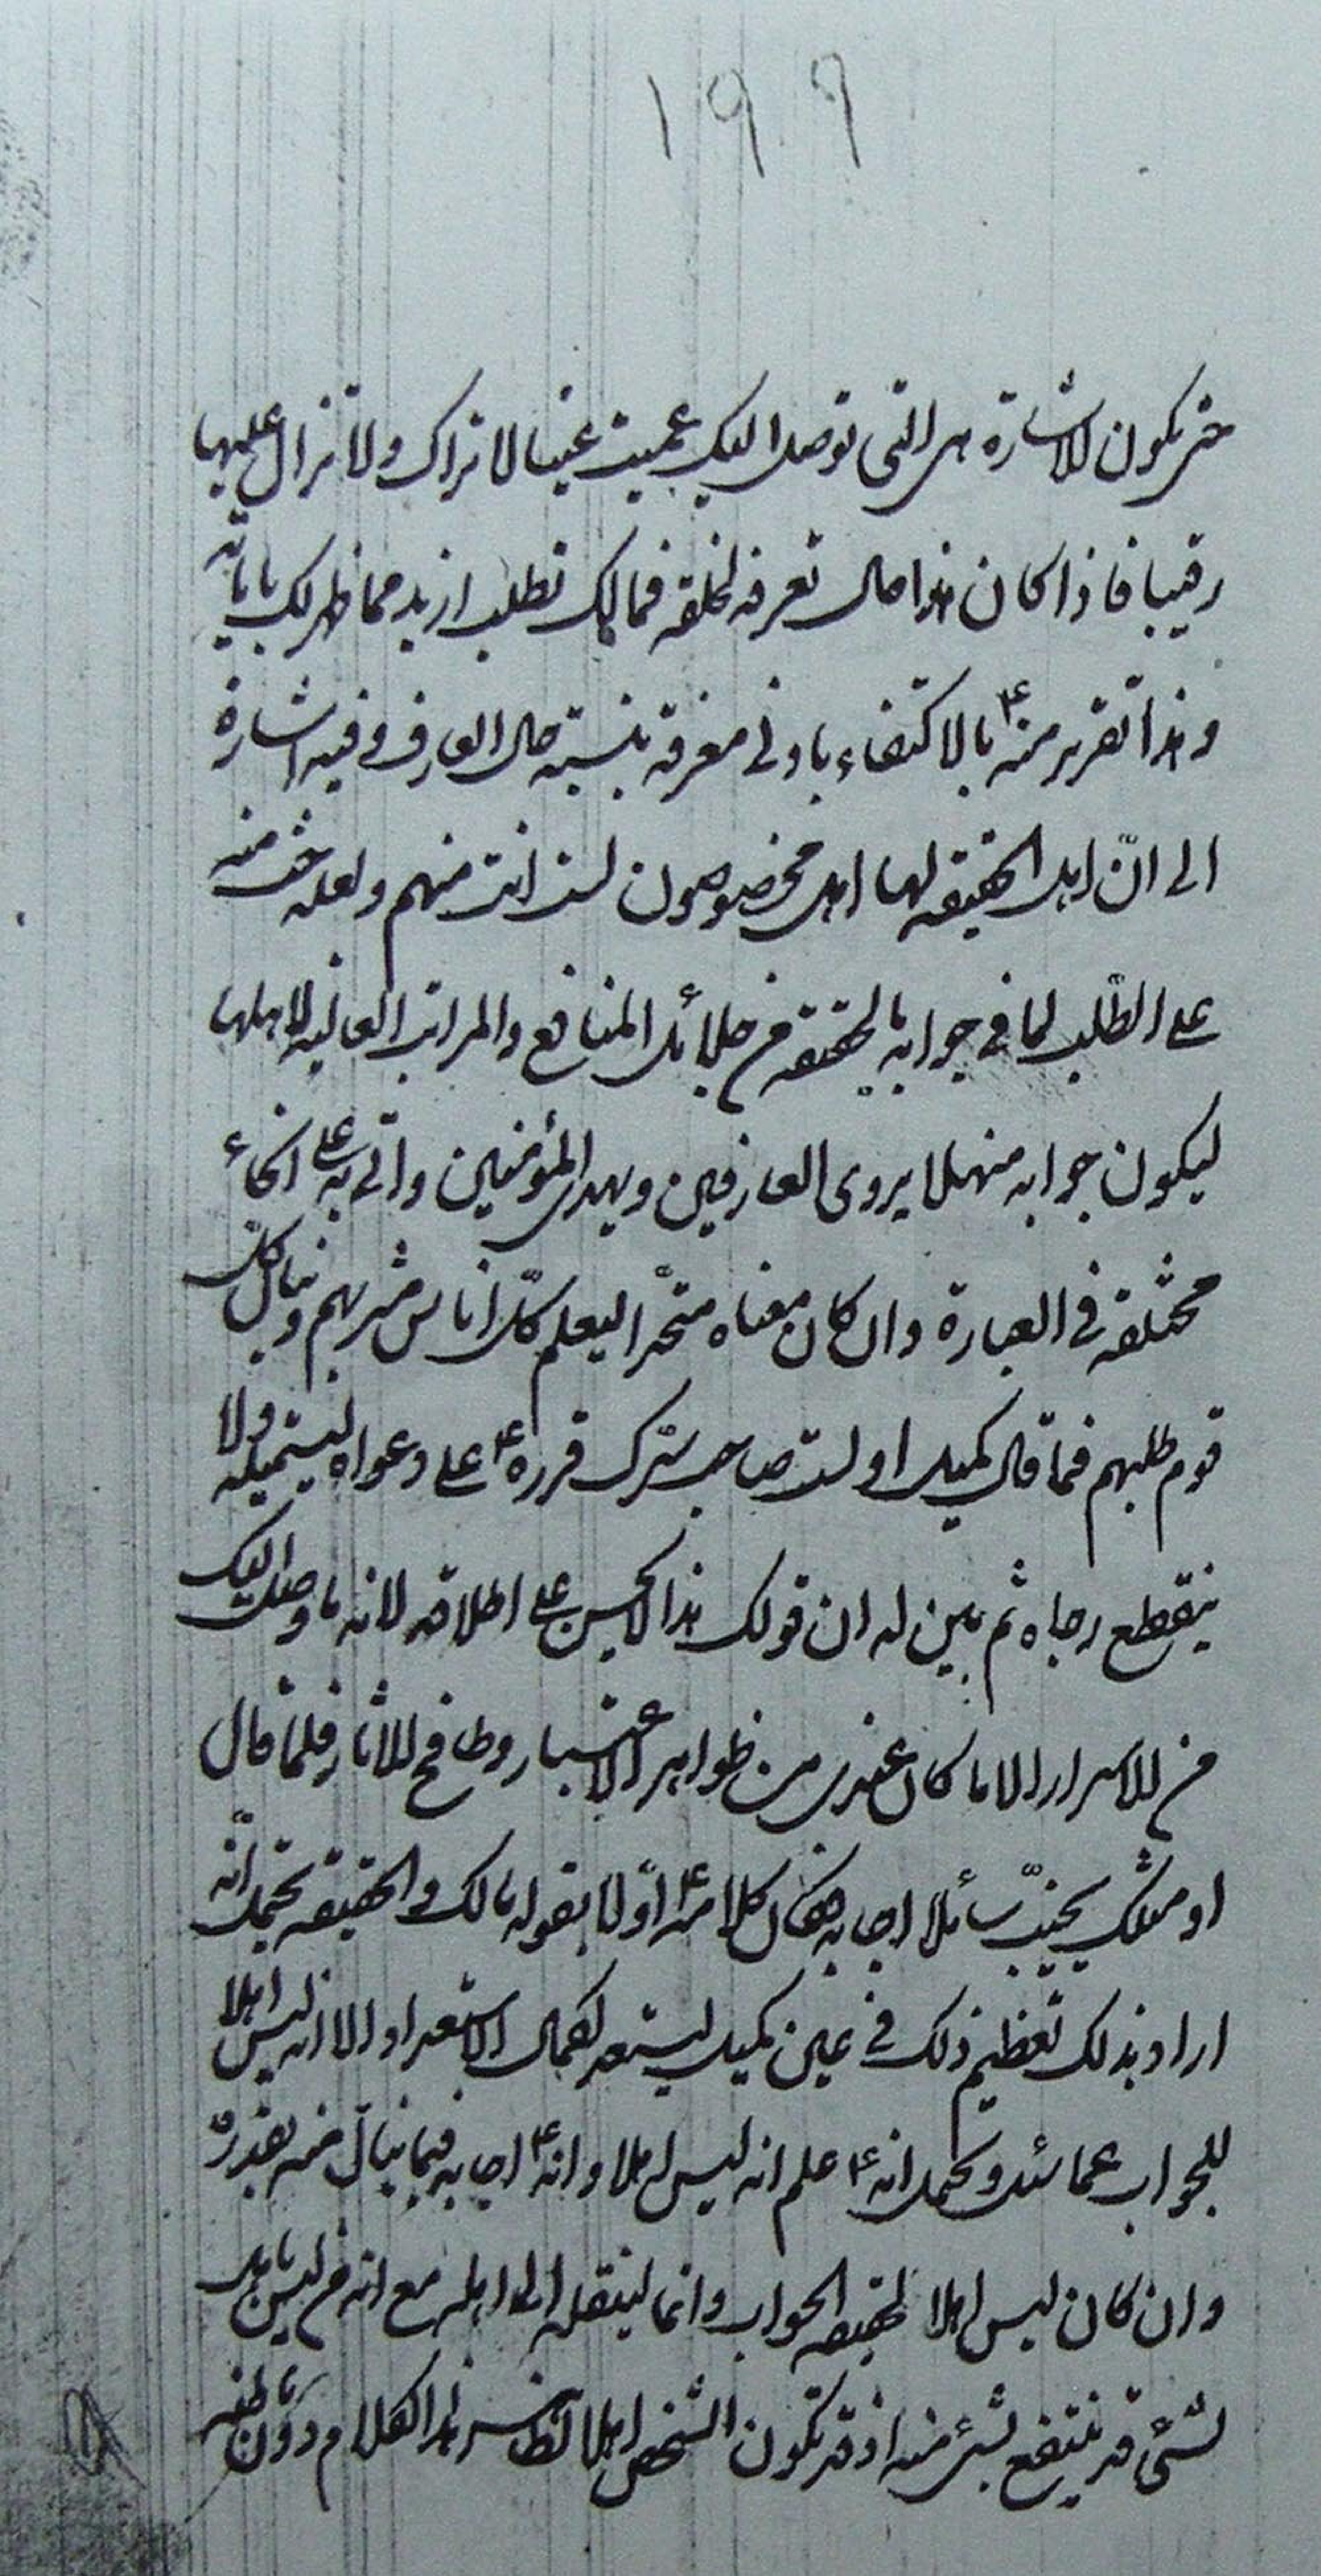 ١٩٩
حتى يكون الاشارة هى التى توصل اليك عميت عين لا تراك ولا تزال عليها
رقيبا فاذا كان هذا حال تعرفه لخلقه فمالك تطلب ازيد مما ظهر لك باياته
وهذا تقرير منه ع بالاكتفاء بادنى معرفة بنسبة حال العارف وفيه اشارة
الى انّ اهل الحقيقه لها اهل مخصوصون لست انت منهم ولعله حث منه
على الطلب لما فى جوابه بالحقيقه من جلائل المنافع والمراتب العاليه لاهلها
ليكون جوابه منهلا يروى العارفين ويهدى المؤمنين واتى به على انحاء
مختلفه فى العبارة وان كان معناه متحدا ليعلم كلّ اناس مشربهم وينال كل
قوم طلبهم فما قال كميل اولست صاحب سرّك قرره ع على دعواه ليستميله ولا
ينقطع رجاه ثم بين له ان قولك هذا لا يحسن على اطلاقه لانه ما وصل اليك
من الاسرار الا ما كان عندى من ظواهر الاعتبار وطافح الاثار فلما قال
او مثلك يخيّب سائلا اجابه فقال كلامه ع اوّلا بقوله مالك والحقيقه يحتمل انّه
اراد بذلك تعظيم ذلك فى عين كميل ليستعد لكمال الاستعداد الا انه ليس اهلا
للجواب عما سئل ويحتمل انه ع علم انه ليس اهلا وانه ع اجابه فيما ينال منه بقدره
وان كان ليس اهلا لحقيقه الجواب وانما لينقله الى اهله مع انه من ليس باهل
لشئ قد ينتفع بشئ منه اذ قد يكون الشخص اهلا لظاهر هذا الكلام دون باطنه